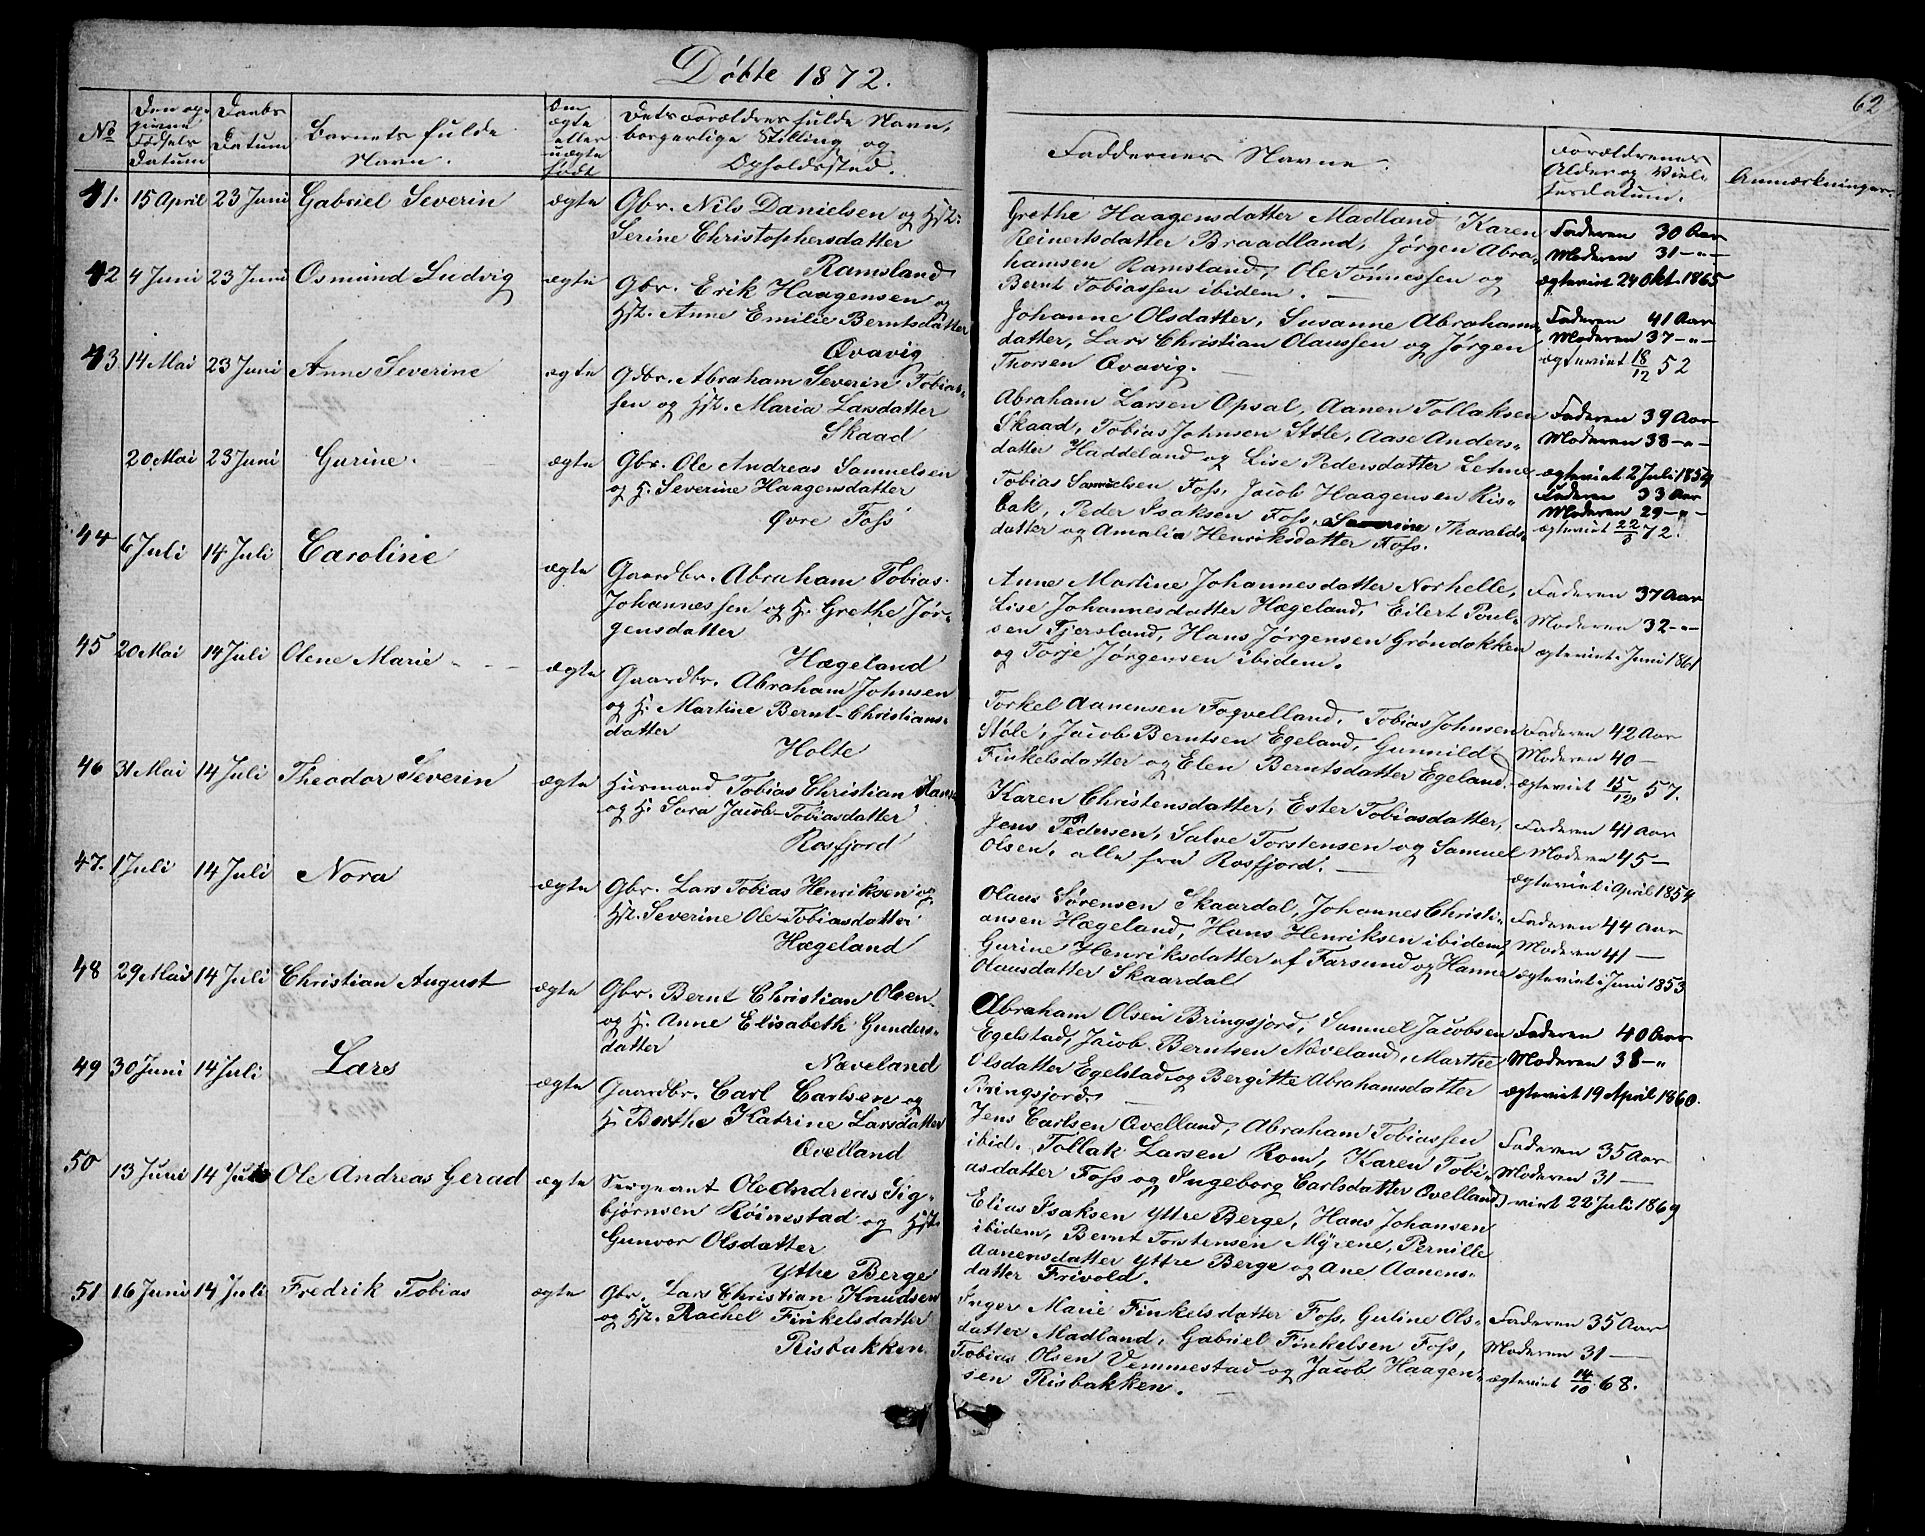 Döbte 1872.
62
No
Den op-
givne
Födsels
Datum
Daabs
Datum
Barnets fulde
Navn.
Om
ægte
eller
uægte
födt
Dets Forældres fulde Navn,
borgerlige Stilling og
Opholdssted.
Faddernes Navne.
Forældrenes
Alder og Viel-
sesdatum.
Anmærkninger.
41. 15 April 23 Juni Gabriel Severin ægte Gbr. Nils Danielsen og Hst.
Serine Christophersdatter
Ramsland
Grethe Haagensdatter Madland, Karen
Reinertsdatter Braadland, Jørgen Abra-
hamsen Ramsland, Ole Tönnessen og
Bernt Tobiassen ibidem. —
Faderen 30 Aar
Moderen 31 -"-
ægteviet 24 Okt. 1865
42 4 Juni 23 Juni Osmund Ludvig ægte Gbr. Erik Haagensen og
Hst. Anne Emilie Berntsdatter
Qvavig
Johanne Olsdatter, Susanne Abrahams-
datter, Lars Christian Olaussen og Jørgen
Thorsen Qvavig.
Faderen 41 Aar
Moderen 37 -"-
ægteviet 18/12 52
43. 14 Mai 23 Juni Anne Severine ægte Gdbr. Abraham Severin Tobias-
sen og Hst. Maria Larsdatter
Skaad
Abraham Larsen Opsal, Aanen Tollaksen
Skaad, Tobias Johnsen Stöle, Aase Anders-
datter Haddeland og Lise Pedersdatter Lehne
Faderen 39 Aar
Moderen 38 -"-
ægteviet 2 Juli 1854
20 Mai 23 Juni Gurine. ægte Gbr. Ole Andreas Samuelsen
og H. Severine Haagensdatter
Øvre Foss
Tobias Samuelsen Foss, Jacob Haagensen Ris-
bak, Peder Isaksen Foss, Tharalds-
datter og Amalia Henriksdatter Foss.
Faderen 33 Aar
Moderen 29 -"-
ægteviet 72.
44 6 Juli 14 Juli Caroline ægte Gaardbr. Abraham Tobias
Johannessen og H. Grethe Jör-
gensdatter
Hægeland
Anne Martine Johannesdatter Norhelle,
Lise Johannesdatter Hægeland, Eilert Poul-
sen Tjersland, Hans Jørgensen Gröndokken
og Torje Jørgensen ibidem.
Faderen 37 Aar
Moderen 32 -"-
ægteviet i Juni 1861
45 20 Mai 14 Juli Olene Marie ægte Gaardbr. Abraham Johnsen
og H. Martine Bernt-Christians-
datter
Holte
Torkel Aanensen Fogvelland, Tobias Johnsen
Stöle, Jacob Berntsen Egeland, Gunnild
Finkelsdatter og Elen Berntsdatter Egeland.
Faderen 42 Aar
Moderen 40 —
ægteviet 15/12 57.
46 31 Mai 14 Juli Theodor Severin ægte Husmand Tobias Christian
og H. Sara Jacob-Tobiasdatter
Rosfjord
Karen Christensdatter, Ester Tobiasdatter,
Jens Pedersen, Salve Torstensen og Samuel
Olsen, alle fra Rosfjord. —
Faderen 41 Aar
Moderen 45 —
ægteviet i April 1854
47. 1 Juli 14 Juli Nora ægte Gbr. Lars Tobias Henriksen og
Hst. Severine Ole-Tobiasdatter
Hægeland
Olaus Sörensen Skaardal, Johannes Christi-
ansen Hægeland, Hans Henriksen ibidem,
Gurine Henriksdatter af Farsund og Hanne
Olausdatter Skaardal
Faderen 44 Aar
Moderen 41 —
ægteviet i Juni 1853
48 29 Mai 14 Juli Christian August ægte Gbr. Bernt Christian Olsen
og H. Anne Elisabeth Gunders-
datter
Næveland
Abraham Olsen Bringsjord, Samuel Jacobsen
Egelstad, Jacob Berntsen Næveland, Marthe
Olsdatter Egelstad og Bergitte Abrahamsdatter
Bringsjord. —
Faderen 40 Aar
Moderen 38 -"
ægteviet 19 April 1860.
49 30 Juni 14 Juli Lars ægte Gaardbr. Carl Carlsen og
H. Berthe Katrine Larsdatter
Qvelland
Jens Carlsen Qvelland, Abraham Tobiassen
ibid. Tollak Larsen Rom, Karen Tobi-
asdatter Foss og Ingeborg Carlsdatter Qvelland
Faderen 35 Aar
Moderen 31 —
viet 22 Juli 1869
50 13 Juni 14 Juli Ole Andreas Gerad ægte Sergeant Ole Andreas Sig-
björnsen Röinestad og Hst.
Gunvor Olsdatter
Yttre Berge
Elias Isaksen Yttre Berge, Hans Johansen
ibidem, Bernt Torstensen Myrene, Pernille
Aanensdatter Yttre Berge og Ane Aanens-
datter Frivold.
51 16 Juni 14 Juli Fredrik Tobias ægte Gbr. Lars Christian Knudsen
og Hst. Rachel Finkelsdatter
Risbakken
Inger Marie Finkelsdatter Foss, Guline Ols-
datter Madland, Gabriel Finkelsen Foss,
Tobias Olsen Vemmestad og Jacob Haagen-
sen Risbakken. —
Faderen 35 Aar
Moderen 31 —
ægteviet 14/10 68.